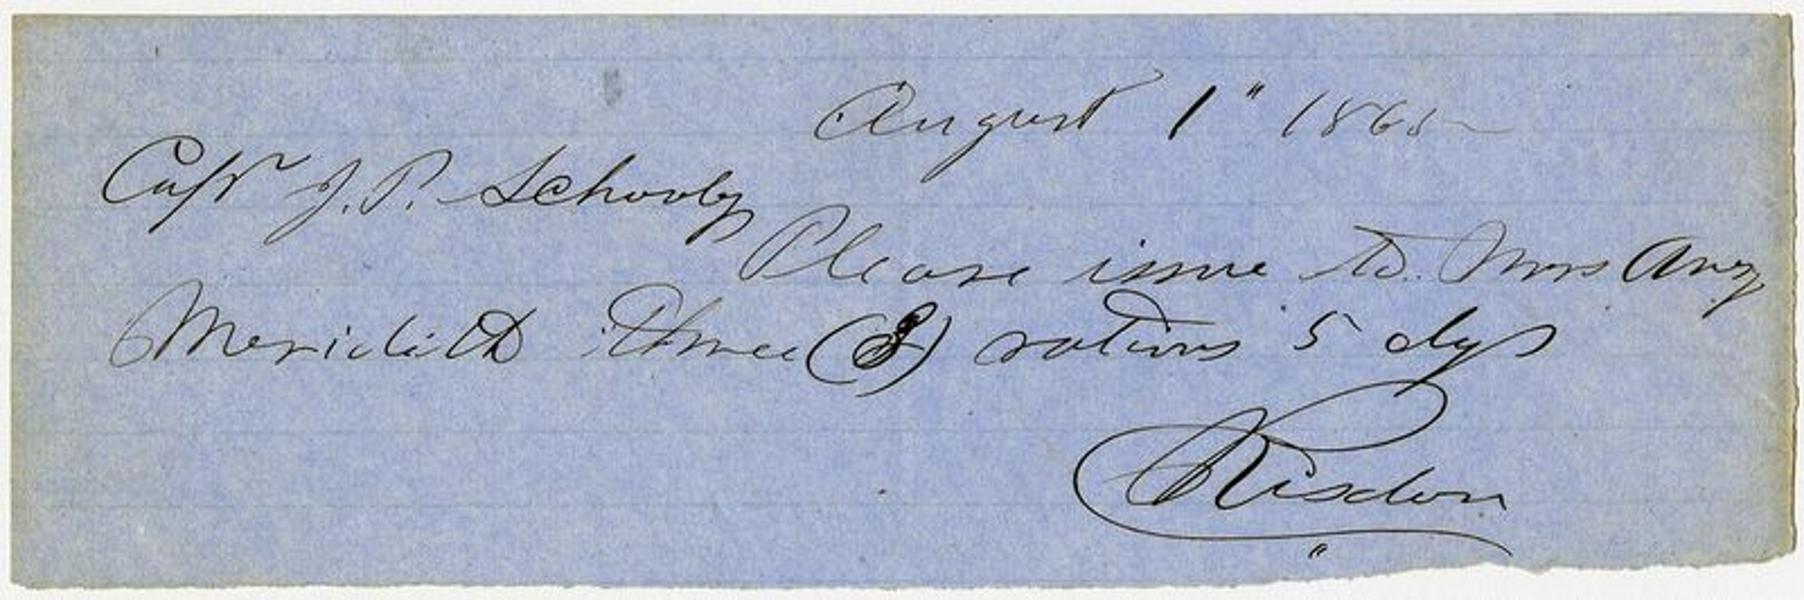 August 1" 1865
Capt J. P. Schooly
Please issue to Mrs Amy
Meridith Three (3) rations 5 dys
Risdon